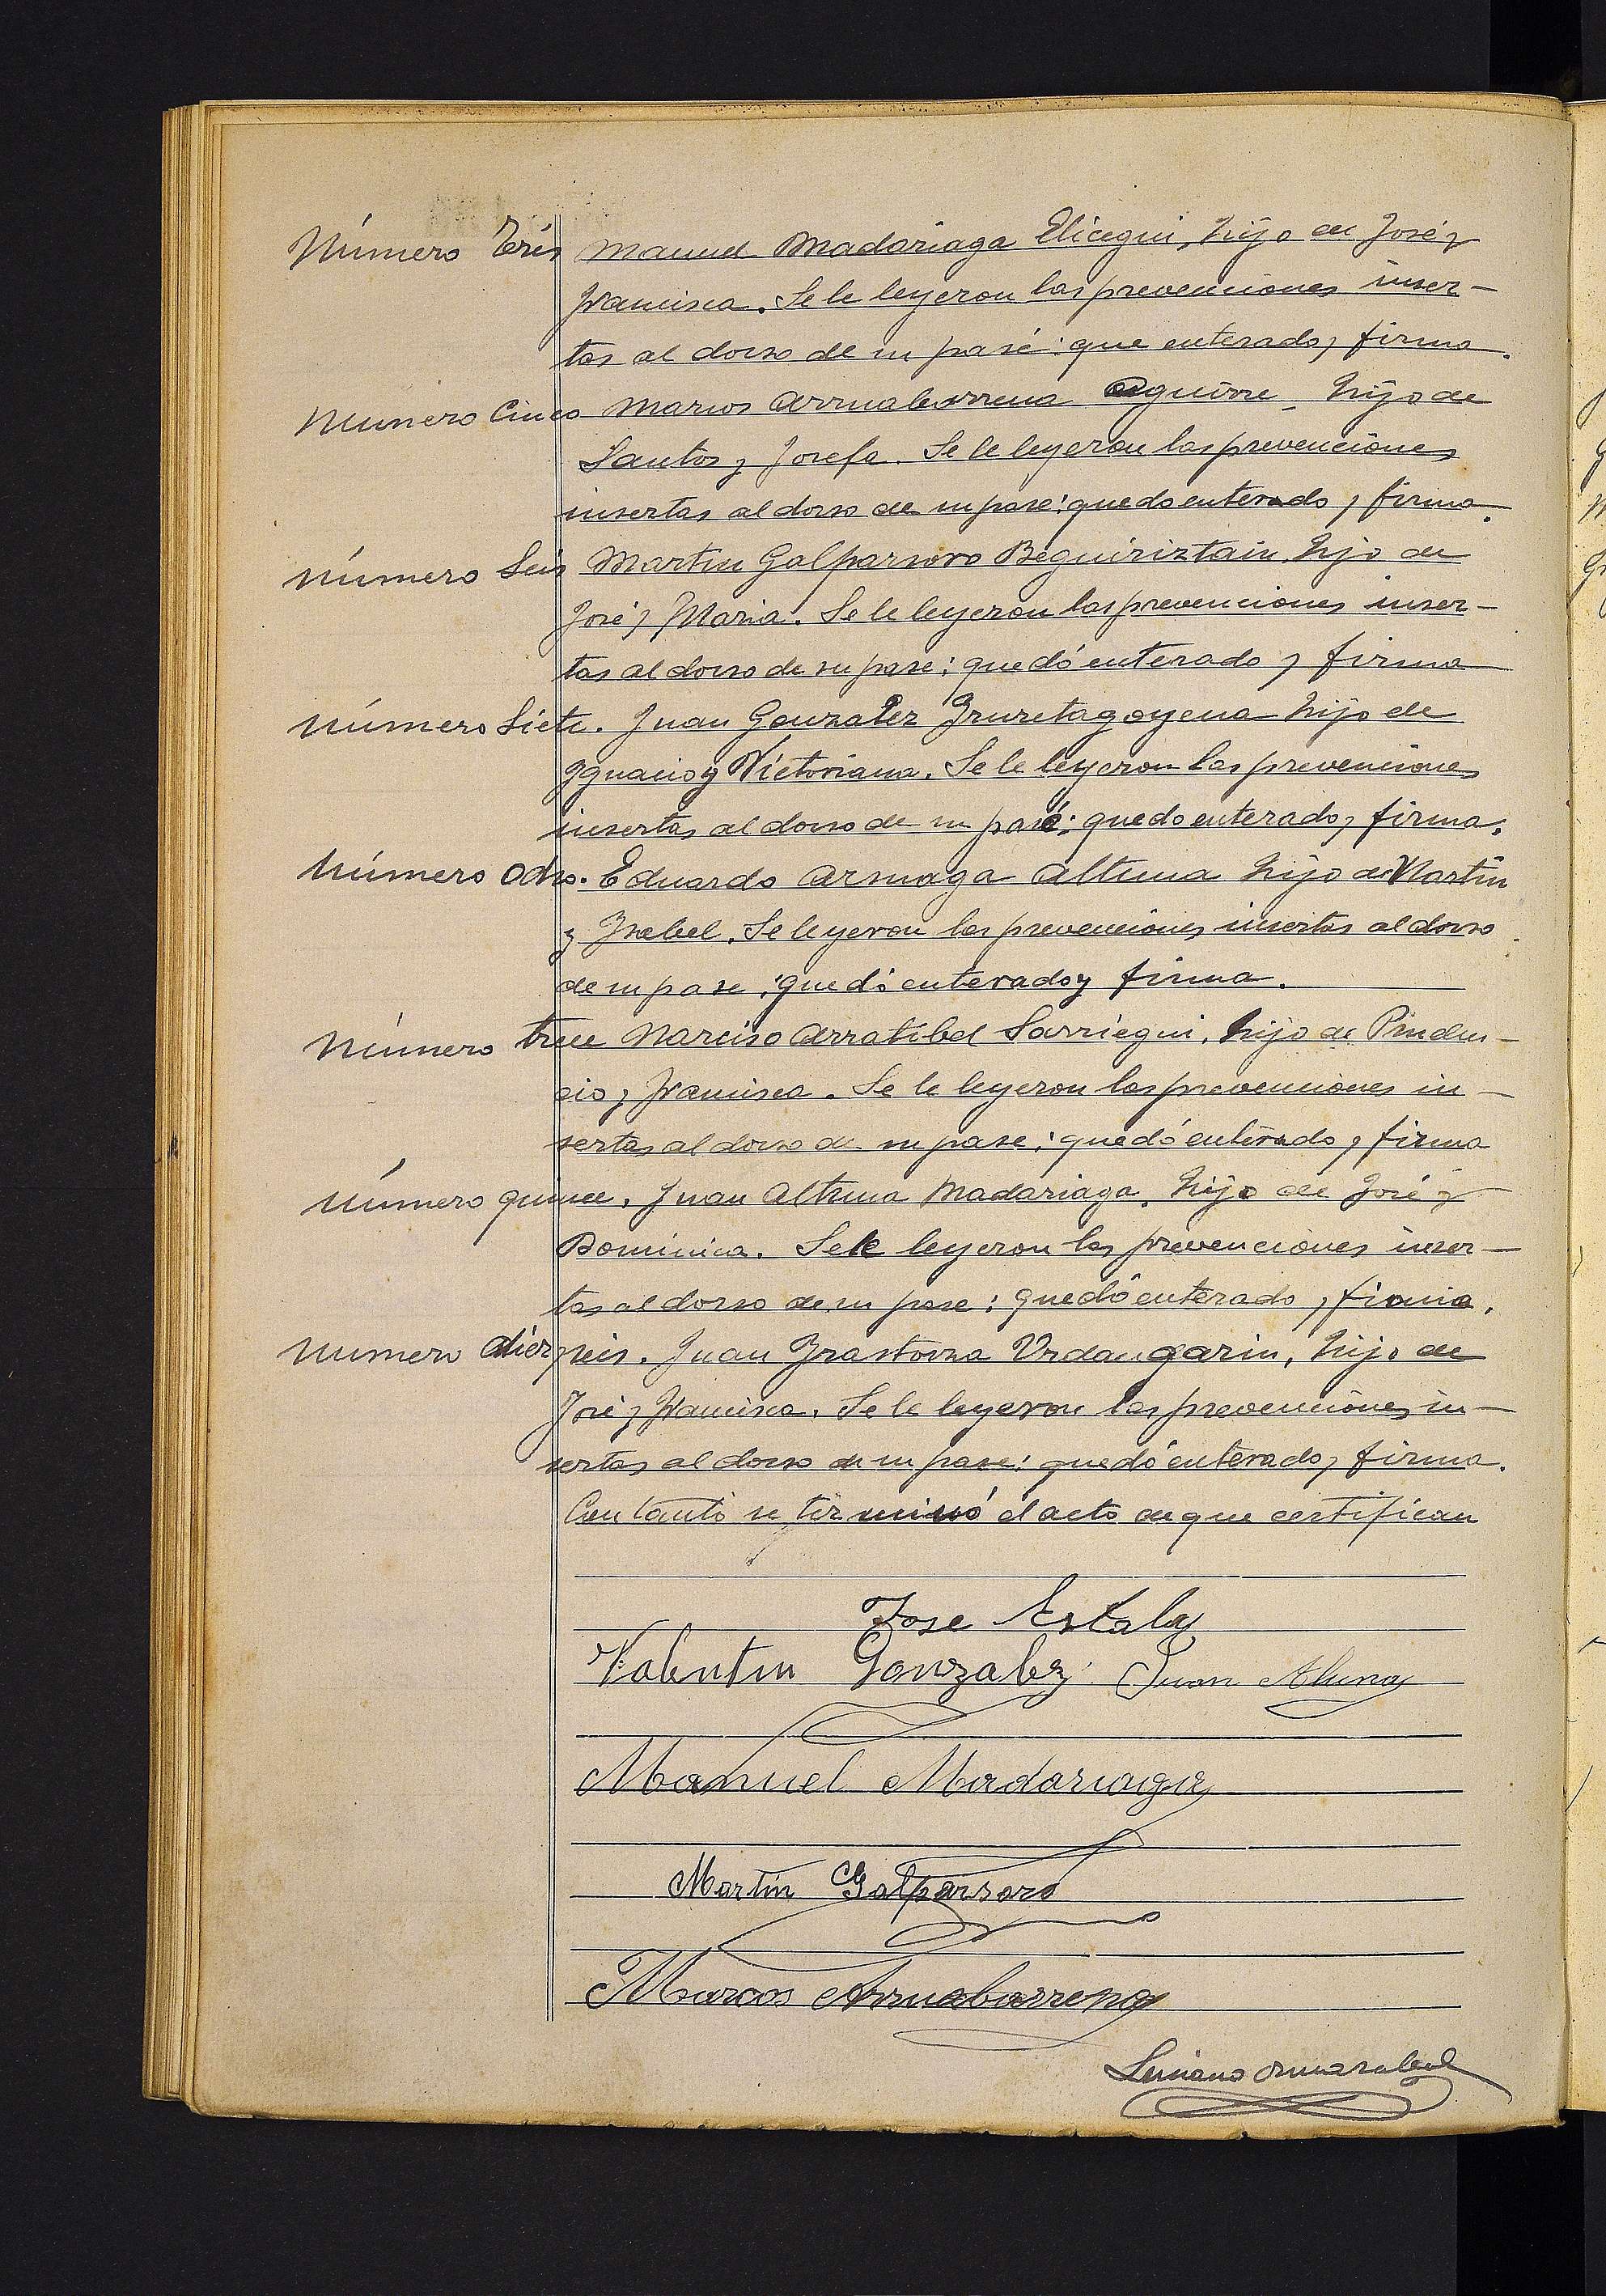 Número Tres Manuel Madariaga Elicegui, hijo de José y
Francisca. Se le leyeron las prevenciones inser-
tas al dorso de su pase: que enterado y firma.
Numero Cinco Marcos Arruabarrena Aguirre hijo de
Santos y Josefa. Se le leyeron las prevenciones
insertas al dorso de su pase: quedo enterado y firma.
número Seis Martin Galparsoro Beguiriztain, hijo de
José y Maria. Se le leyeron las prevenciones inser-
tas al dorso de su pase: quedó enterado y firma
número Siete. Juan Gonzalez Iruretagoyena hijo de
Ignacio y Victoriana. Se le leyeron las prevenciones
insertas al dorso de su pase: quedo enterado y firma.
Número Ocho. Eduardo Altuna hijo de Martin
y Isabel. Se leyeron las prevenciones insertas al dorso
de su pase: quedó enterado y firma.
Número trece Narciso Arratibel Sarriegui, hijo de Pruden-
cio y Francisca. Se le leyeron las prevenciones in-
sertas al dorso de su pase: quedó enterado y firma
número quince. Juan Altuna Madariaga, hijo de José y
Dominica. Se le leyeron las prevenciones inser-
tas al dorso de su pase: quedó enterado y firma.
Numero diez y seis. Juan Irastorza Urdangarin, hijo de
José y Francisca. Se le leyeron las prevenciones in-
sertas al dorso de su pase: quedó enterado y firma.
Con tanto se terminó el acto de que certifican
Jose Estala
Valentin Gonzalez Juan Altuna
Manuel Madariaga
Martin Galparsoro
Marcos Arruabarrena
Luciano